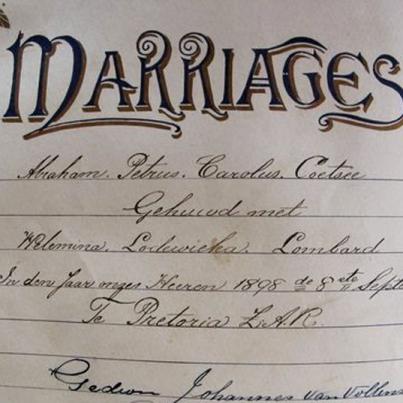 MARRIAGES
Abraham. Petrus. Carolus. Coetsee
Gehuwd met
Wilemina. Lodewicka. Lombard
In den Jaar onzes Heeren 1898 de 8 ste Septe
Te Pretoria Z.A.R.
Gedion Johannes van Vollens